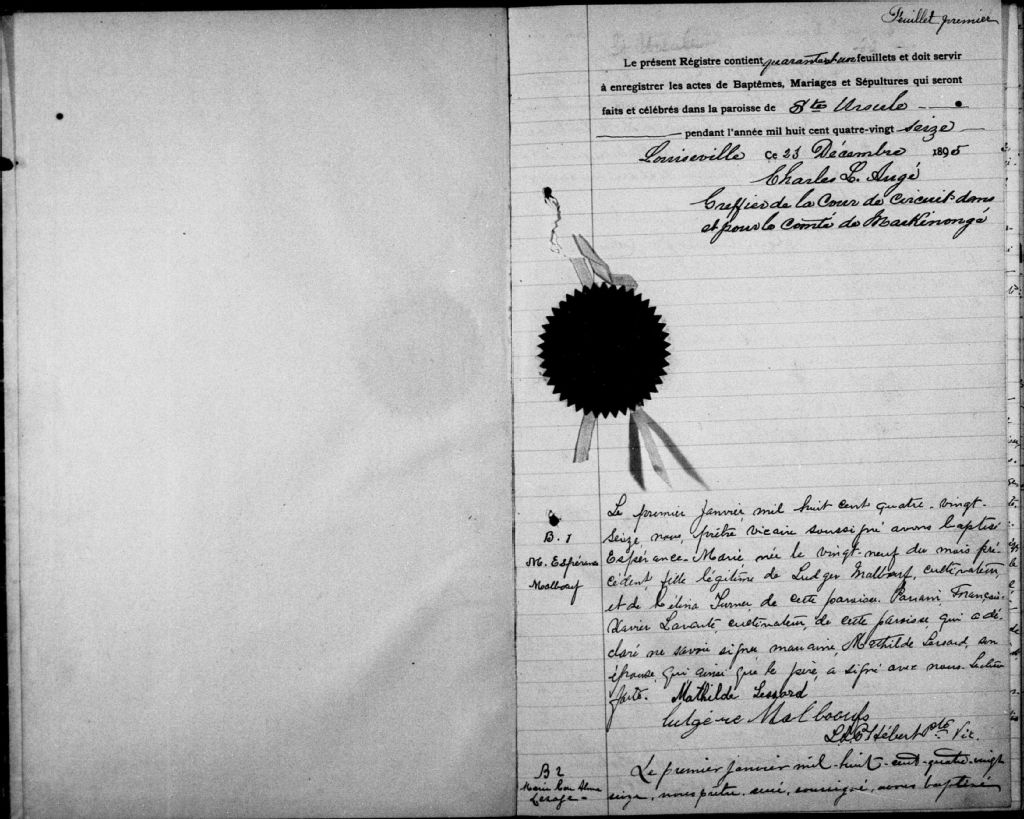 Feuillet premier
Le présent Régistre contient quarante et un feuillets et doit servir
à enregistrer les actes de Baptêmes, Mariages et Sépultures qui seront
faits et célébrés dans la paroisse de Ste Ursule
pendant l'année mil huit cent quatre-vingt seize
Louiseville Ce 23 Décembre 1895
Charles L. Augé
Greffier de la Cour de circuit dans
et pour le Comté de Maskinongé
B. 1
M. Espérance
Malboeuf
Le premier janvier mil huit cent quatre-vingt-
seize, nous, prêtre vicaire soussigné avons baptisé
Espérance-Marie née le vingt-neuf du mois pré-
cédent, fille légitime de Ludger Malboeuf, cultivateur,
et de Célina Turner de cette paroisse. Parrain, François-
Xavier, cultivateur, de cette paroisse, qui a dé-
claré ne savoir signer, marraine, Mathilde Lessard, son
épouse, qui ainsi que le père, a signé avec nous. Lecture
faite. Mathilde Lessard
Malboeuf
Hébert Ptre Vic.
B 2
Marie
Lesage
Le premier janvier mil-huit-cent-quatre-vingt
seize, nous prêtre, curé, soussigné, avons baptisé